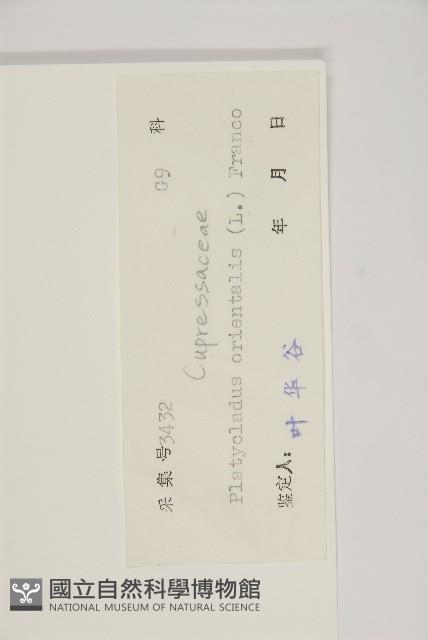 采集号3432 G9 科
Cupressaceae
Platycladus orientalis (L.) Franco
鉴定人: 叶华谷 年 月 日
國立自然科學博物館
NATIONAL MUSEUM OF NATURAL SCIENCE